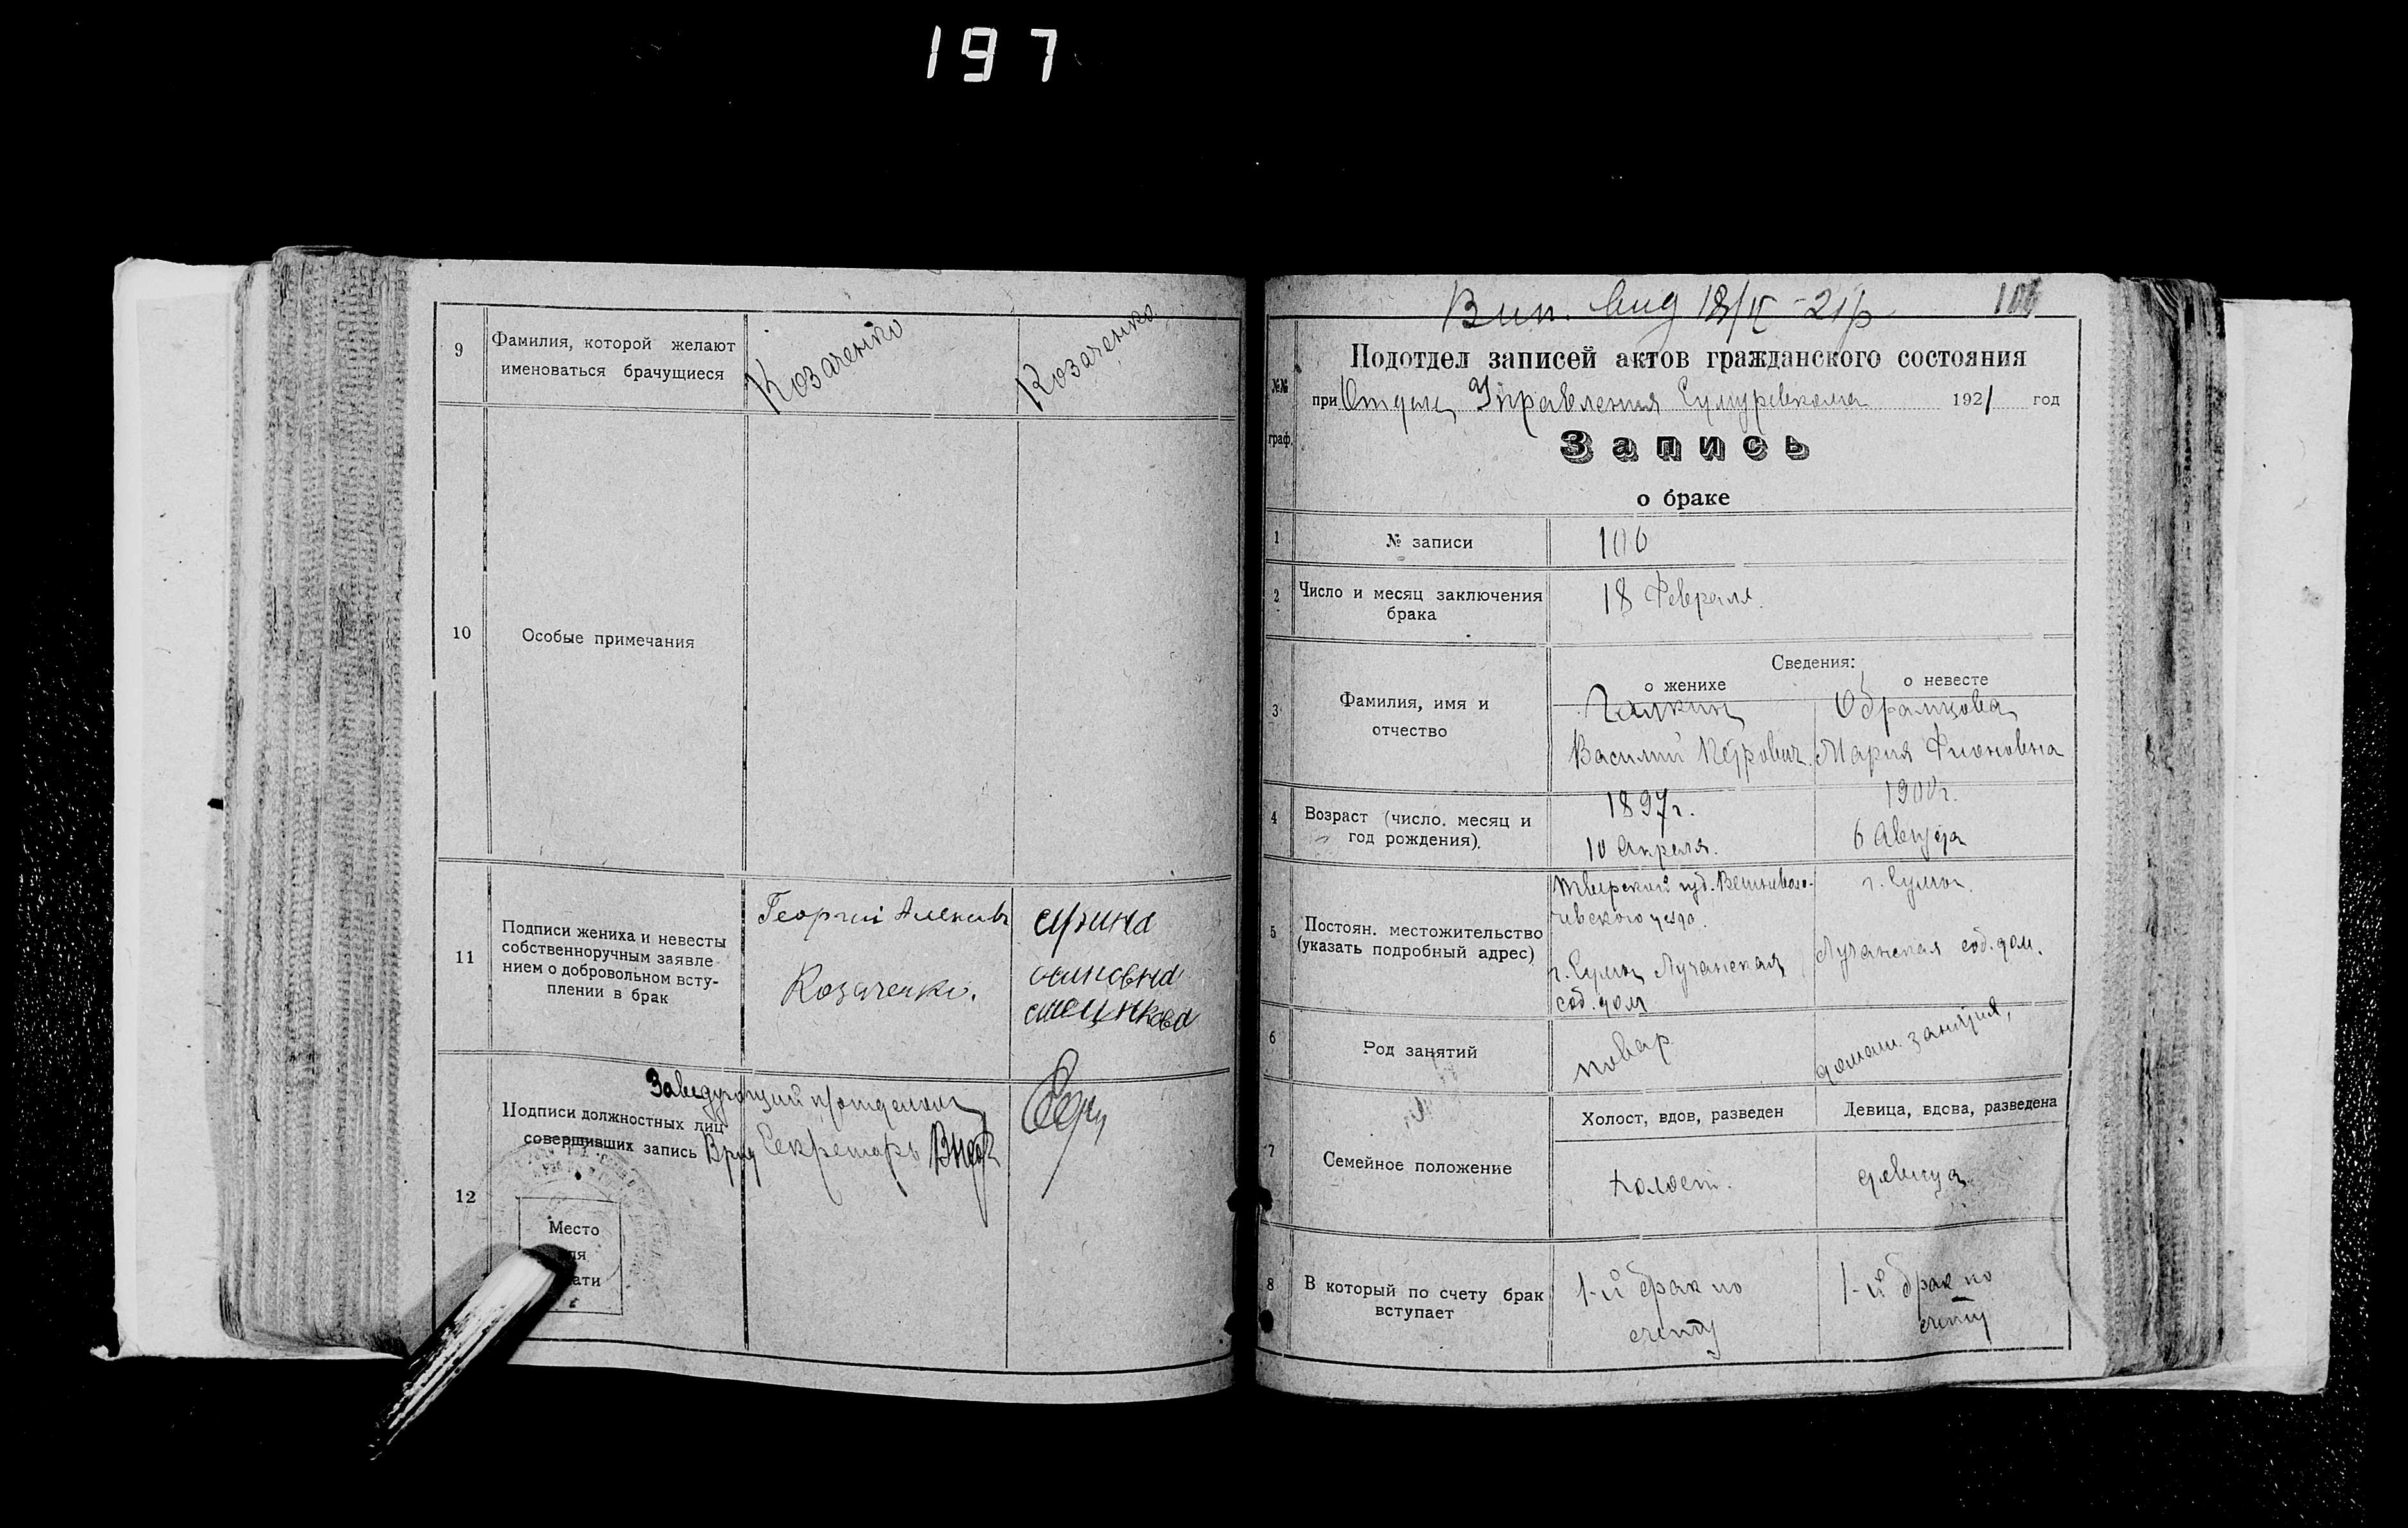 197
9
Фамилия, которой желают
именоваться брачущиеся
Козаченко
Козаченко
10
Особые примечания
11
Подписи жениха и невесты
собственноручным заявле-
нием о добровольном всту-
плении в брак
Георгий
Козаченко.
12
Заведующий п/отделом
Подписи должностных лиц
совершивших запись
Врид Секретарь
Место
106
Подотдел записей актов гражданского состояния
№№
граф.
при Отделе Управления Сумуревкома 1921 год
Запись
о браке
1
№ записи
106
2
Число и месяц заключения
брака
18 Февраля.
Сведения:
о женихе
о невесте
3
Фамилия, имя и
отчество
Галкин
Василий Петрович.
Образцова
Мария Фионовна
4
Возраст (число, месяц и
год рождения).
1897г.
10 Апреля.
1900г.
6 Августа
5
Постоян. местожительство
(указать подробный адрес)
Тверский губ. Вешневоло-
чевского уезда.
г. Сумы Лучанская
соб. дом
г. Сумы.
Лучанская соб. дом.
6
Род занятий
повар
домаш. занятия,
7
Семейное положение
Холост, вдов, разведен
Девица, вдова, разведена
холост.
девица
8
В который по счету брак
вступает
1-й брак по
счету
1-й брак по
счету